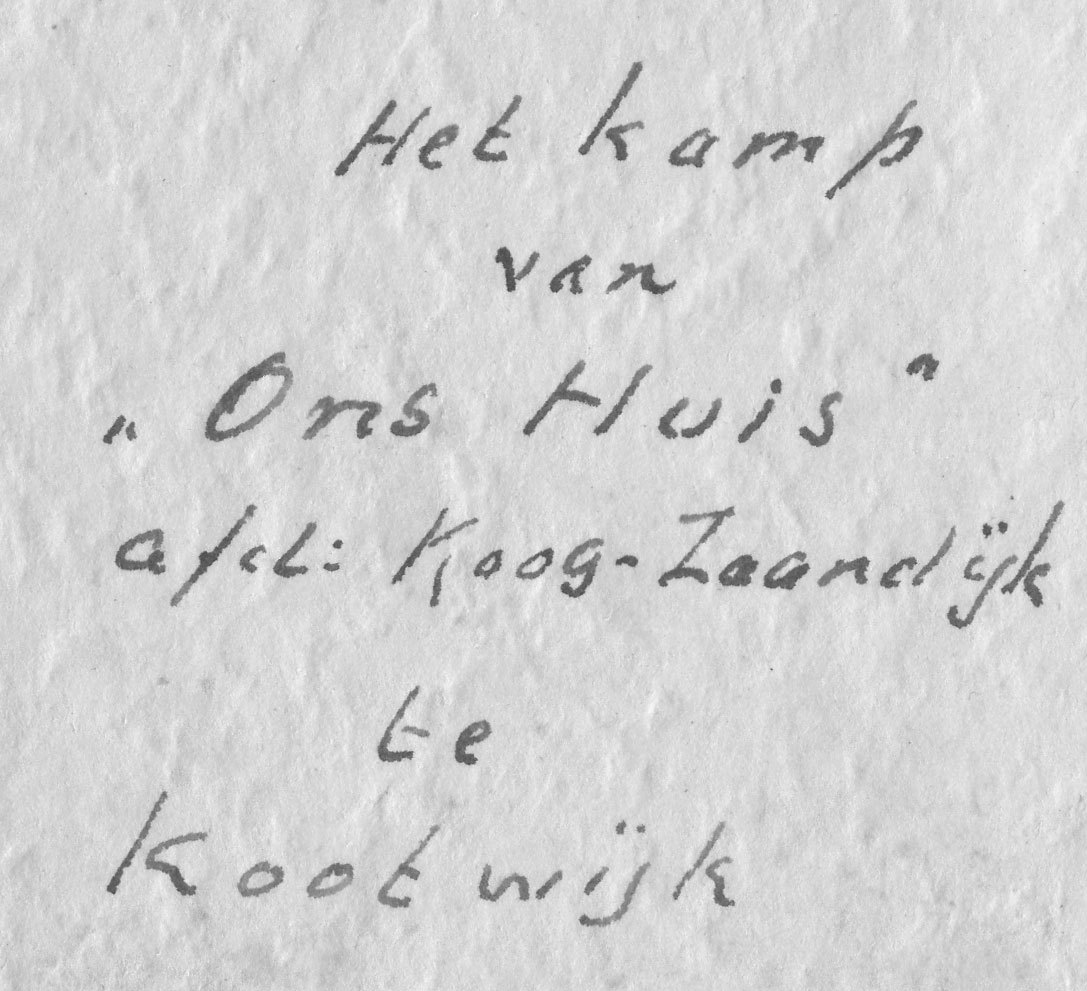 Het kamp
van
„Ons Huis"
afd: Koog-Zaandijk
te
Kootwijk